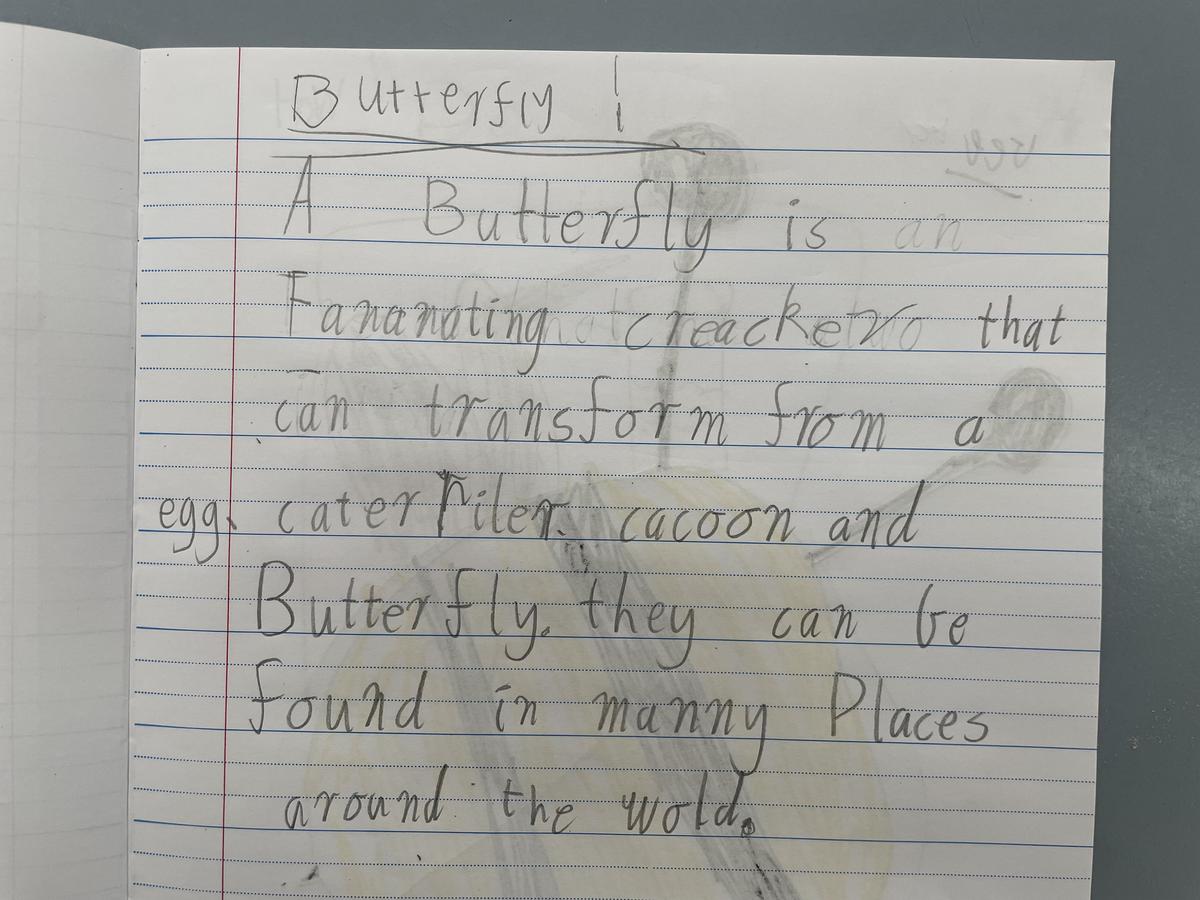 Butterfly !
A Butterfly is an
Fananating creacker that
can transform from a
egg. caterPiler. cacoon and
Butterfly. they can be
found in manny Places
around the wold.